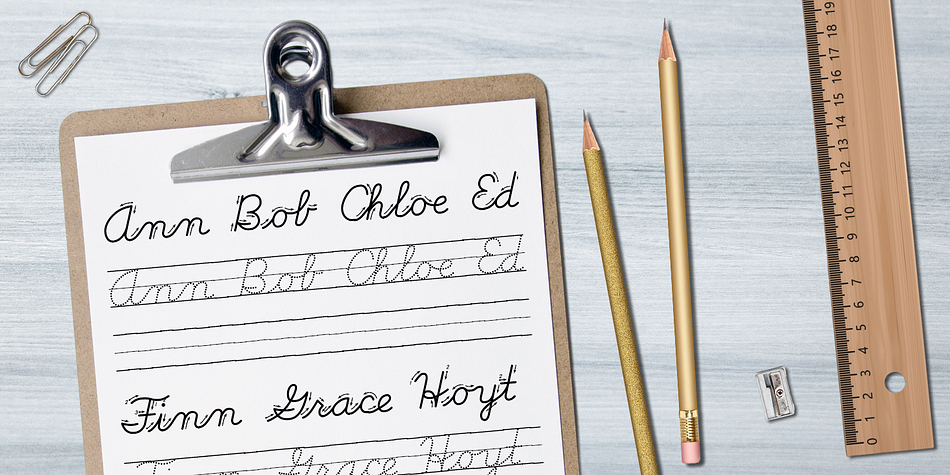 Ann Bob Chloe Ed
Ann Bob Chloe Ed
Finn Grace Hoyt
Finn Grace Hoyt
0 1 2 3 4 5 6 7 8 9 10 11 12 13 14 15 16 17 18 19